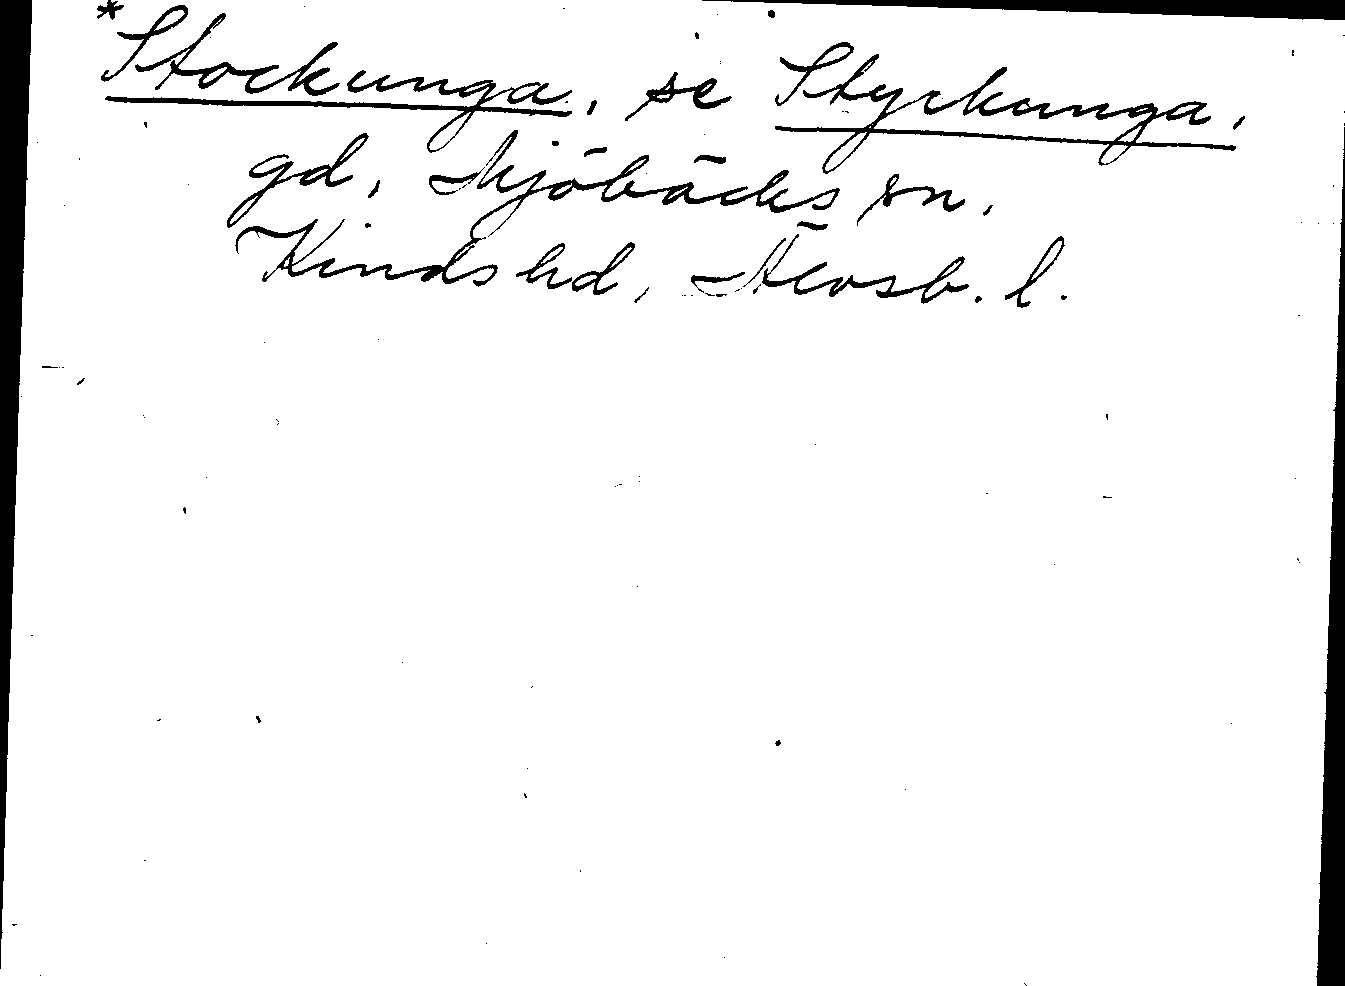 *Stockunga, se Styrkunga,
gd, Mjöbäcks sn,
Kinds hd, Älvsb. l.